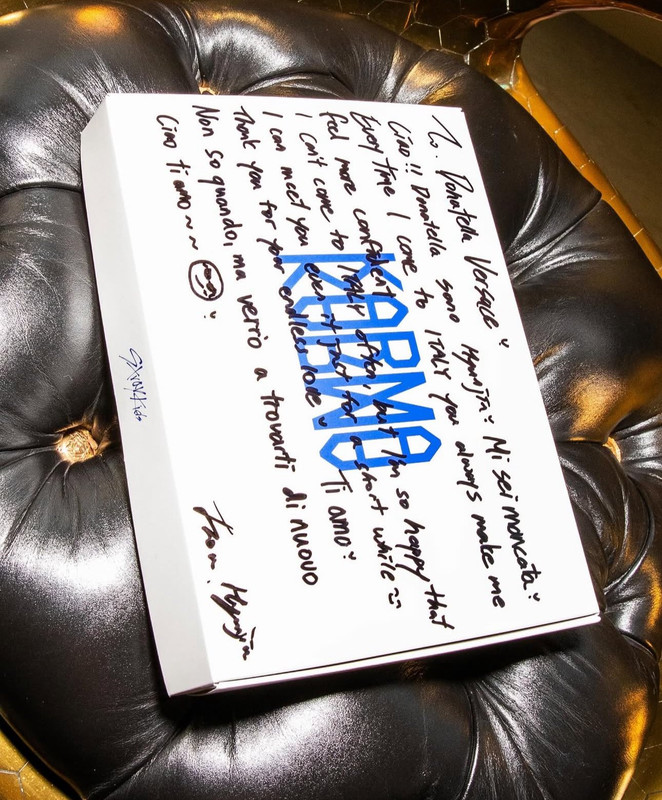 To. Donatella Versace
Ciao!! Donatella sono Hyunjin Mi sei mancata
Every time I come to ITALY you always make me
feel more confident
I can't come to ITALY often, but I'm so happy that
I can meet you even if just for a short while ~
Thank you for your endless love. Ti amo
Non so quando, ma verrò a trovarti di nuovo
Ciao ti amo ~ ~
From. Hyunjin
KARMA
Stray Kids